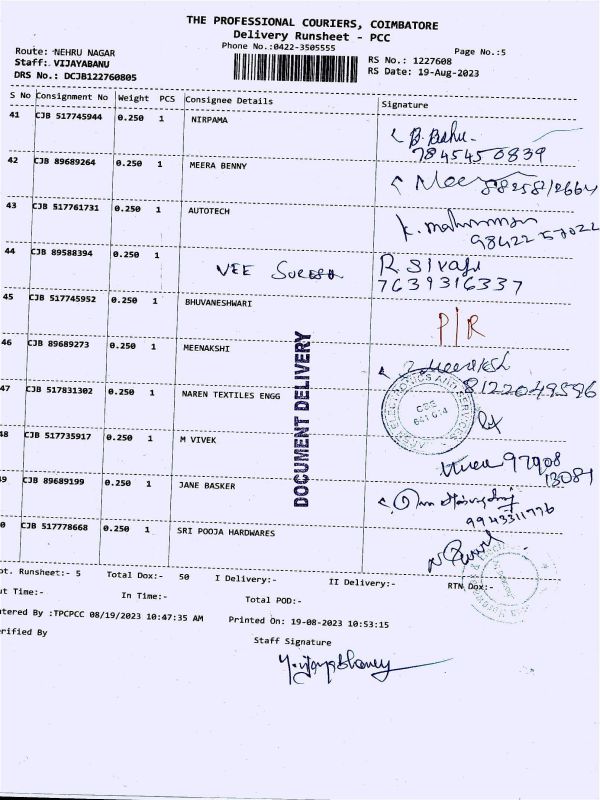 THE PROFESSIONAL COURIERS, COIMBATORE
Delivery Runsheet - PCC
Phone No.:0422-3505555
Page No.:5
Route: NEHRU NAGAR
Staff: VIJAYABANU
DRS No.: DCJB122760805
RS No.: 1227608
RS Date: 19-Aug-2023
S No Consignment No Weight PCS Consignee Details Signature
41 CJB 517745944 0.250 1 NIRPAMA
7845450839
42 CJB 89689264 0.250 1 MEERA BENNY
43 CJB 517761731 0.250 1 AUTOTECH
44 CJB 89588394 0.250 1 VEE SURESH R SIVAJI
7639316337
45 CJB 517745952 0.250 1 BHUVANESHWARI P/R
46 CJB 89689273 0.250 1 MEENAKSHI
8122049596
47 CJB 517831302 0.250 1 NAREN TEXTILES ENGG
48 CJB 517735917 0.250 1 M VIVEK
97908
13081
49 CJB 89689199 0.250 1 JANE BASKER
9943311776
0 CJB 517778668 0.250 1 SRI POOJA HARDWARES
DOCUMENT DELIVERY
pt. Runsheet:- 5 Total Dox:- 50 I Delivery:- II Delivery:- RTN Dox:-
ut Time:- In Time:- Total POD:-
tered By :TPCPCC 08/19/2023 10:47:35 AM Printed On: 19-08-2023 10:53:15
erified By Staff Signature